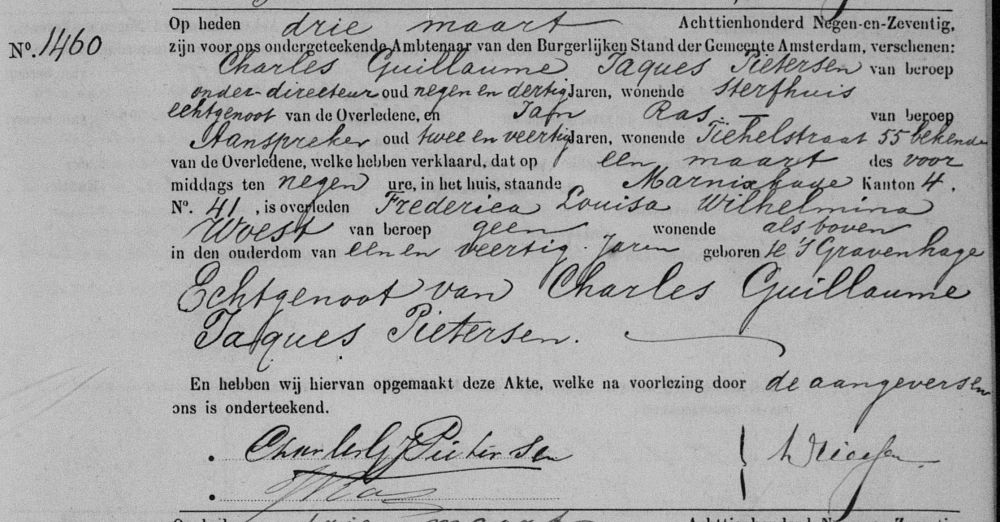 Nº. 1460
Op heden drie maart Achttienhonderd Negen-en-Zeventig,
zijn voor ons ondergeteekende Ambtenaar van den Burgerlijken Stand der Gemeente Amsterdam, verschenen:
Charles Guillaume Jaques Pietersen van beroep
onder-directeur oud negen en dertig Jaren, wonende Sterfhuis
echtgenoot van de Overledene, en Jan Ras — van beroep
Aanspreker oud twee en veertig Jaren, wonende Tichelstraat 55 bekende
van de Overledene, welke hebben verklaard, dat op een maart des voor
middags ten negen ure, in het huis, staande Marnixkade Kanton 4.
Nº. 41, is overleden Frederica Louisa Wilhelmina
Woest van beroep geen wonende als boven
in den ouderdom van een en veertig Jaren geboren te S Gravenhage
Echtgenoot van Charles Guillaume
Jaques Pietersen.
En hebben wij hiervan opgemaakt deze Akte, welke na voorlezing door de aangevers en
ons is onderteekend.
Charles G J Pietersen
JRas